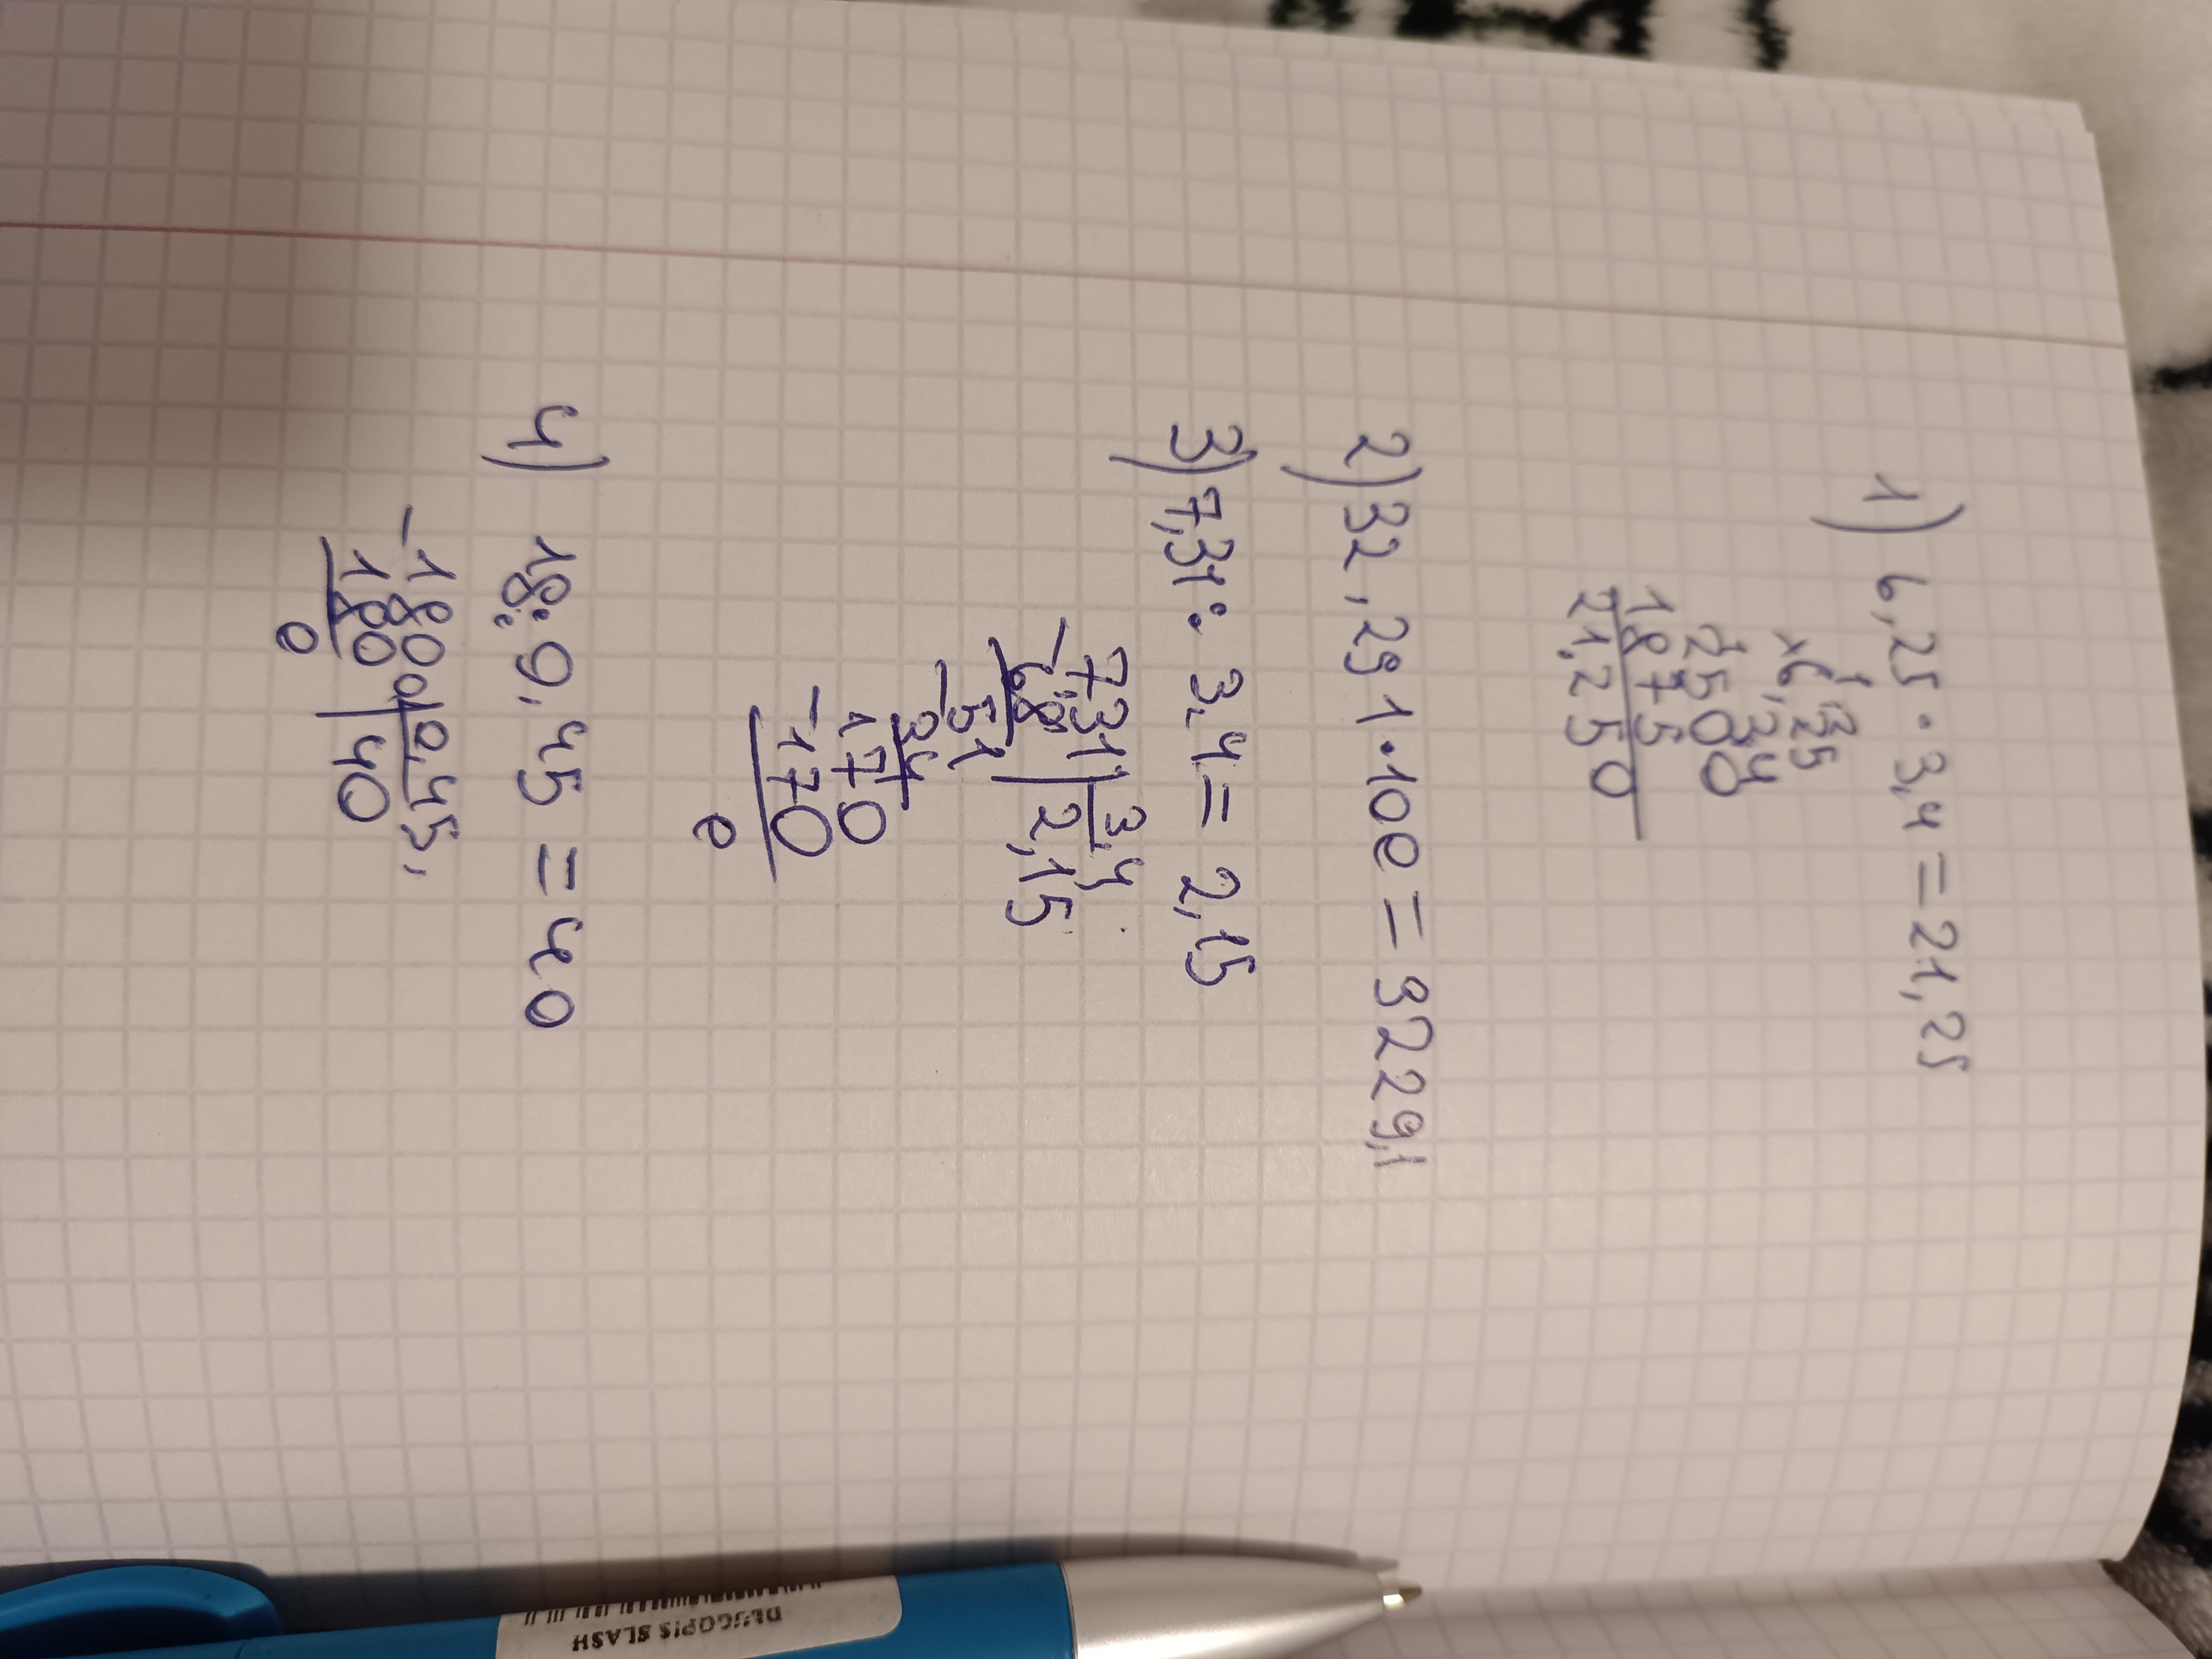 1) 6,25 · 3,4 = 21,25
1 2
x 6,25
3,4
1
2500
1875
21,250
2) 32,291 · 100 = 3229,1
3) 7,31 : 3,4 = 2,15
731 | 3,4
- 68 | 2,15
- 51
34
170
- 170
0
4) 18 : 0,45 = 40
- 1800 | 0,45,
180 | 40
0
DŁUGOPIS SLASH